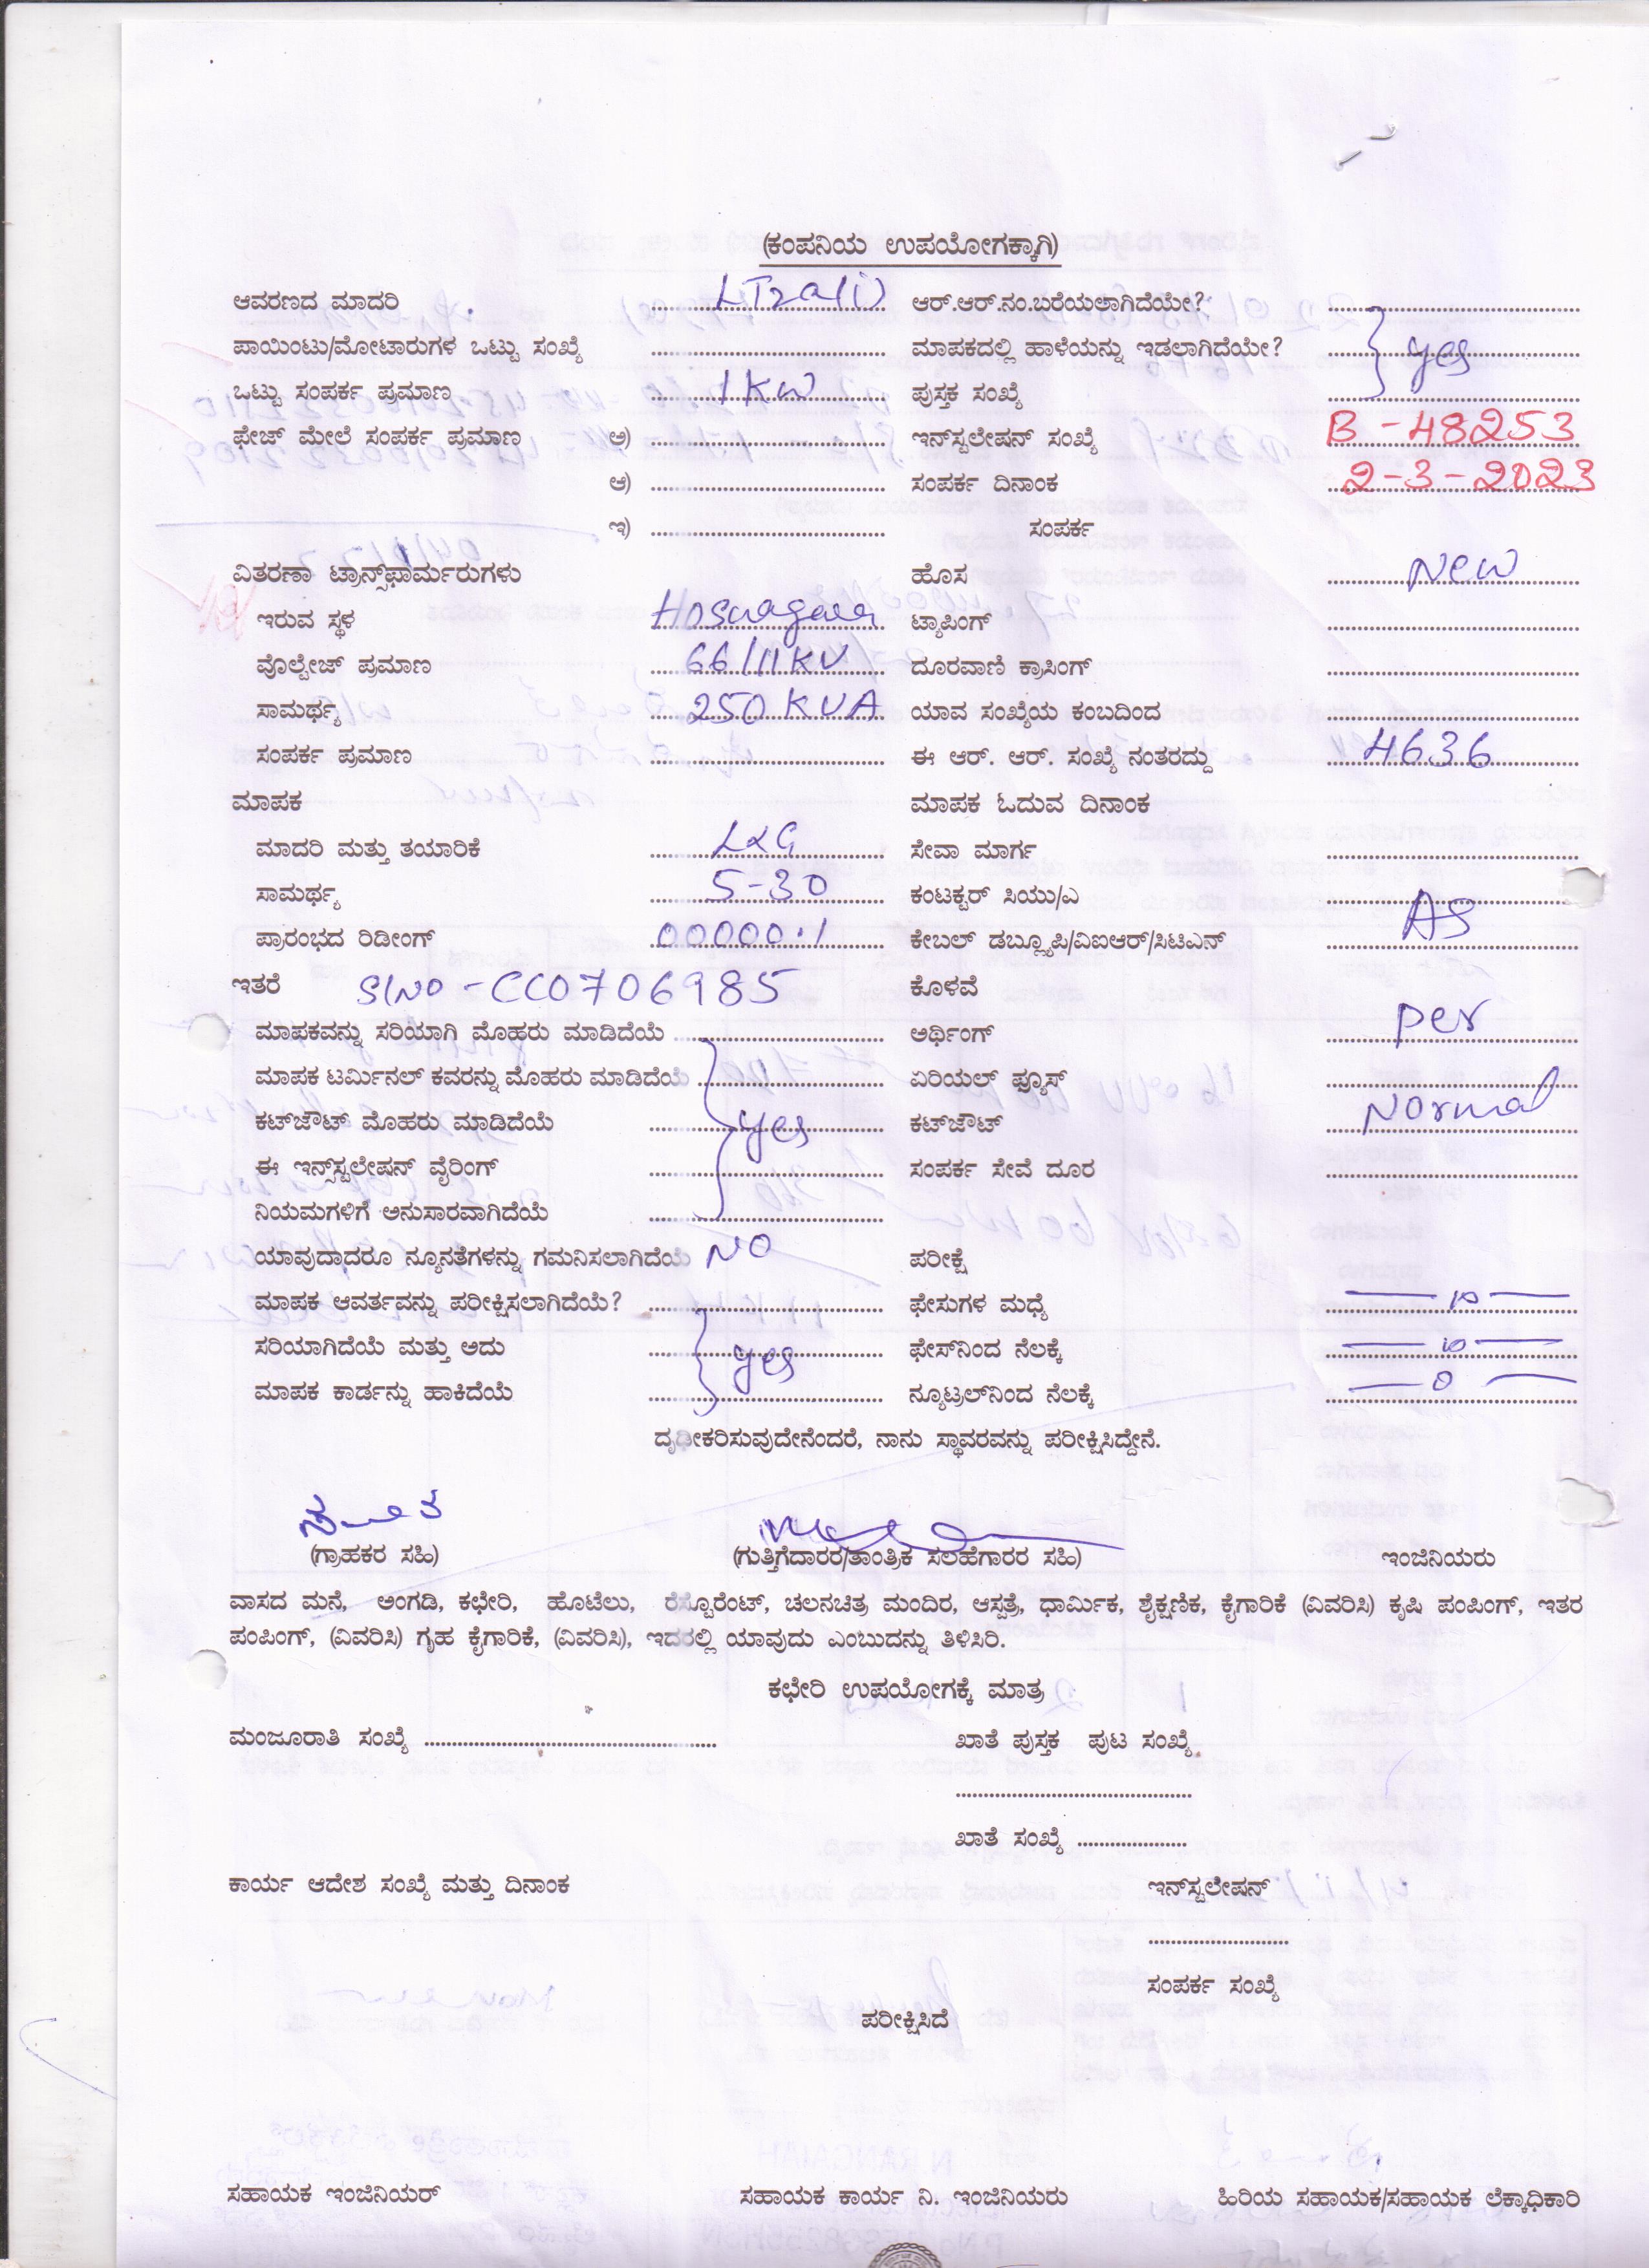 (ಕಂಪನಿಯ ಉಪಯೋಗಕ್ಕಾಗಿ)
ಆವರಣದ ಮಾದರಿ LT2a(i) ಆರ್.ಆರ್.ನಂ.ಬರೆಯಲಾಗಿದೆಯೇ?
ಪಾಯಿಂಟು/ಮೋಟಾರುಗಳ ಒಟ್ಟು ಸಂಖ್ಯೆ ಮಾಪಕದಲ್ಲಿ ಹಾಳೆಯನ್ನು ಇಡಲಾಗಿದೆಯೇ? yes
ಒಟ್ಟು ಸಂಪರ್ಕ ಪ್ರಮಾಣ 1 KW ಪುಸ್ತಕ ಸಂಖ್ಯೆ
ಫೇಜ್ ಮೇಲೆ ಸಂಪರ್ಕ ಪ್ರಮಾಣ ಅ) ಇನ್‌ಸ್ಟಲೇಷನ್ ಸಂಖ್ಯೆ B - 48253
ಆ) ಸಂಪರ್ಕ ದಿನಾಂಕ 2-3-2023
ಇ) ಸಂಪರ್ಕ
ವಿತರಣಾ ಟ್ರಾನ್ಸ್‌ಫಾರ್ಮರುಗಳು ಹೊಸ New
ಇರುವ ಸ್ಥಳ Hosnagara ಟ್ಯಾಪಿಂಗ್
ವೊಲ್ಟೇಜ್ ಪ್ರಮಾಣ 66/11KV ದೂರವಾಣಿ ಕ್ರಾಸಿಂಗ್
ಸಾಮರ್ಥ್ಯ 250 KVA ಯಾವ ಸಂಖ್ಯೆಯ ಕಂಬದಿಂದ
ಸಂಪರ್ಕ ಪ್ರಮಾಣ ಈ ಆರ್. ಆರ್. ಸಂಖ್ಯೆ ನಂತರದ್ದು 4636
ಮಾಪಕ ಮಾಪಕ ಓದುವ ದಿನಾಂಕ
ಮಾದರಿ ಮತ್ತು ತಯಾರಿಕೆ L&G ಸೇವಾ ಮಾರ್ಗ
ಸಾಮರ್ಥ್ಯ 5-30 ಕಂಟಕ್ಟರ್ ಸಿಯು/ಎ
ಪ್ರಾರಂಭದ ರಿಡೀಂಗ್ 00000.1 ಕೇಬಲ್ ಡಬ್ಲ್ಯೂಪಿ/ವಿಐಆರ್/ಸಿಟಿಎನ್ AS
ಇತರೆ Sl No - CC0706985 ಕೊಳವೆ
ಮಾಪಕವನ್ನು ಸರಿಯಾಗಿ ಮೊಹರು ಮಾಡಿದೆಯೆ ಅರ್ಥಿಂಗ್ per
ಮಾಪಕ ಟರ್ಮಿನಲ್ ಕವರನ್ನು ಮೊಹರು ಮಾಡಿದೆಯೆ ಏರಿಯಲ್ ಫ್ಯೂಸ್
ಕಟ್‌ಜೌಟ್ ಮೊಹರು ಮಾಡಿದೆಯೆ yes ಕಟ್‌ಜೌಟ್ Normal
ಈ ಇನ್ಸ್‌ಸ್ಟಲೇಷನ್ ವೈರಿಂಗ್ ಸಂಪರ್ಕ ಸೇವೆ ದೂರ
ನಿಯಮಗಳಿಗೆ ಅನುಸಾರವಾಗಿದೆಯೆ
ಯಾವುದಾದರೂ ನ್ಯೂನತೆಗಳನ್ನು ಗಮನಿಸಲಾಗಿದೆಯೆ NO ಪರೀಕ್ಷೆ
ಮಾಪಕ ಆವರ್ತವನ್ನು ಪರೀಕ್ಷಿಸಲಾಗಿದೆಯೆ? ಫೇಸುಗಳ ಮಧ್ಯೆ — 10 —
ಸರಿಯಾಗಿದೆಯೆ ಮತ್ತು ಅದು yes ಫೇಸ್‌ನಿಂದ ನೆಲಕ್ಕೆ — 10 —
ಮಾಪಕ ಕಾರ್ಡನ್ನು ಹಾಕಿದೆಯೆ ನ್ಯೂಟ್ರಲ್‌ನಿಂದ ನೆಲಕ್ಕೆ — 0 —
ದೃಢೀಕರಿಸುವುದೇನೆಂದರೆ, ನಾನು ಸ್ಥಾವರವನ್ನು ಪರೀಕ್ಷಿಸಿದ್ದೇನೆ.
(ಗ್ರಾಹಕರ ಸಹಿ) (ಗುತ್ತಿಗೆದಾರರ/ತಾಂತ್ರಿಕ ಸಲಹೆಗಾರರ ಸಹಿ) ಇಂಜಿನಿಯರು
ವಾಸದ ಮನೆ, ಅಂಗಡಿ, ಕಛೇರಿ, ಹೊಟೆಲು, ರೆಸ್ಟೊರೆಂಟ್, ಚಲನಚಿತ್ರ ಮಂದಿರ, ಆಸ್ಪತ್ರೆ, ಧಾರ್ಮಿಕ, ಶೈಕ್ಷಣಿಕ, ಕೈಗಾರಿಕೆ (ವಿವರಿಸಿ) ಕೃಷಿ ಪಂಪಿಂಗ್, ಇತರ
ಪಂಪಿಂಗ್, (ವಿವರಿಸಿ) ಗೃಹ ಕೈಗಾರಿಕೆ, (ವಿವರಿಸಿ), ಇದರಲ್ಲಿ ಯಾವುದು ಎಂಬುದನ್ನು ತಿಳಿಸಿರಿ.
ಕಛೇರಿ ಉಪಯೋಗಕ್ಕೆ ಮಾತ್ರ
ಮಂಜೂರಾತಿ ಸಂಖ್ಯೆ ಖಾತೆ ಪುಸ್ತಕ ಪುಟ ಸಂಖ್ಯೆ
ಖಾತೆ ಸಂಖ್ಯೆ
ಕಾರ್ಯ ಆದೇಶ ಸಂಖ್ಯೆ ಮತ್ತು ದಿನಾಂಕ ಇನ್‌ಸ್ಟಲೇಷನ್
ಸಂಪರ್ಕ ಸಂಖ್ಯೆ
ಪರೀಕ್ಷಿಸಿದೆ
ಸಹಾಯಕ ಇಂಜಿನಿಯರ್ ಸಹಾಯಕ ಕಾರ್ಯ ನಿ. ಇಂಜಿನಿಯರು ಹಿರಿಯ ಸಹಾಯಕ/ಸಹಾಯಕ ಲೆಕ್ಕಾಧಿಕಾರಿ